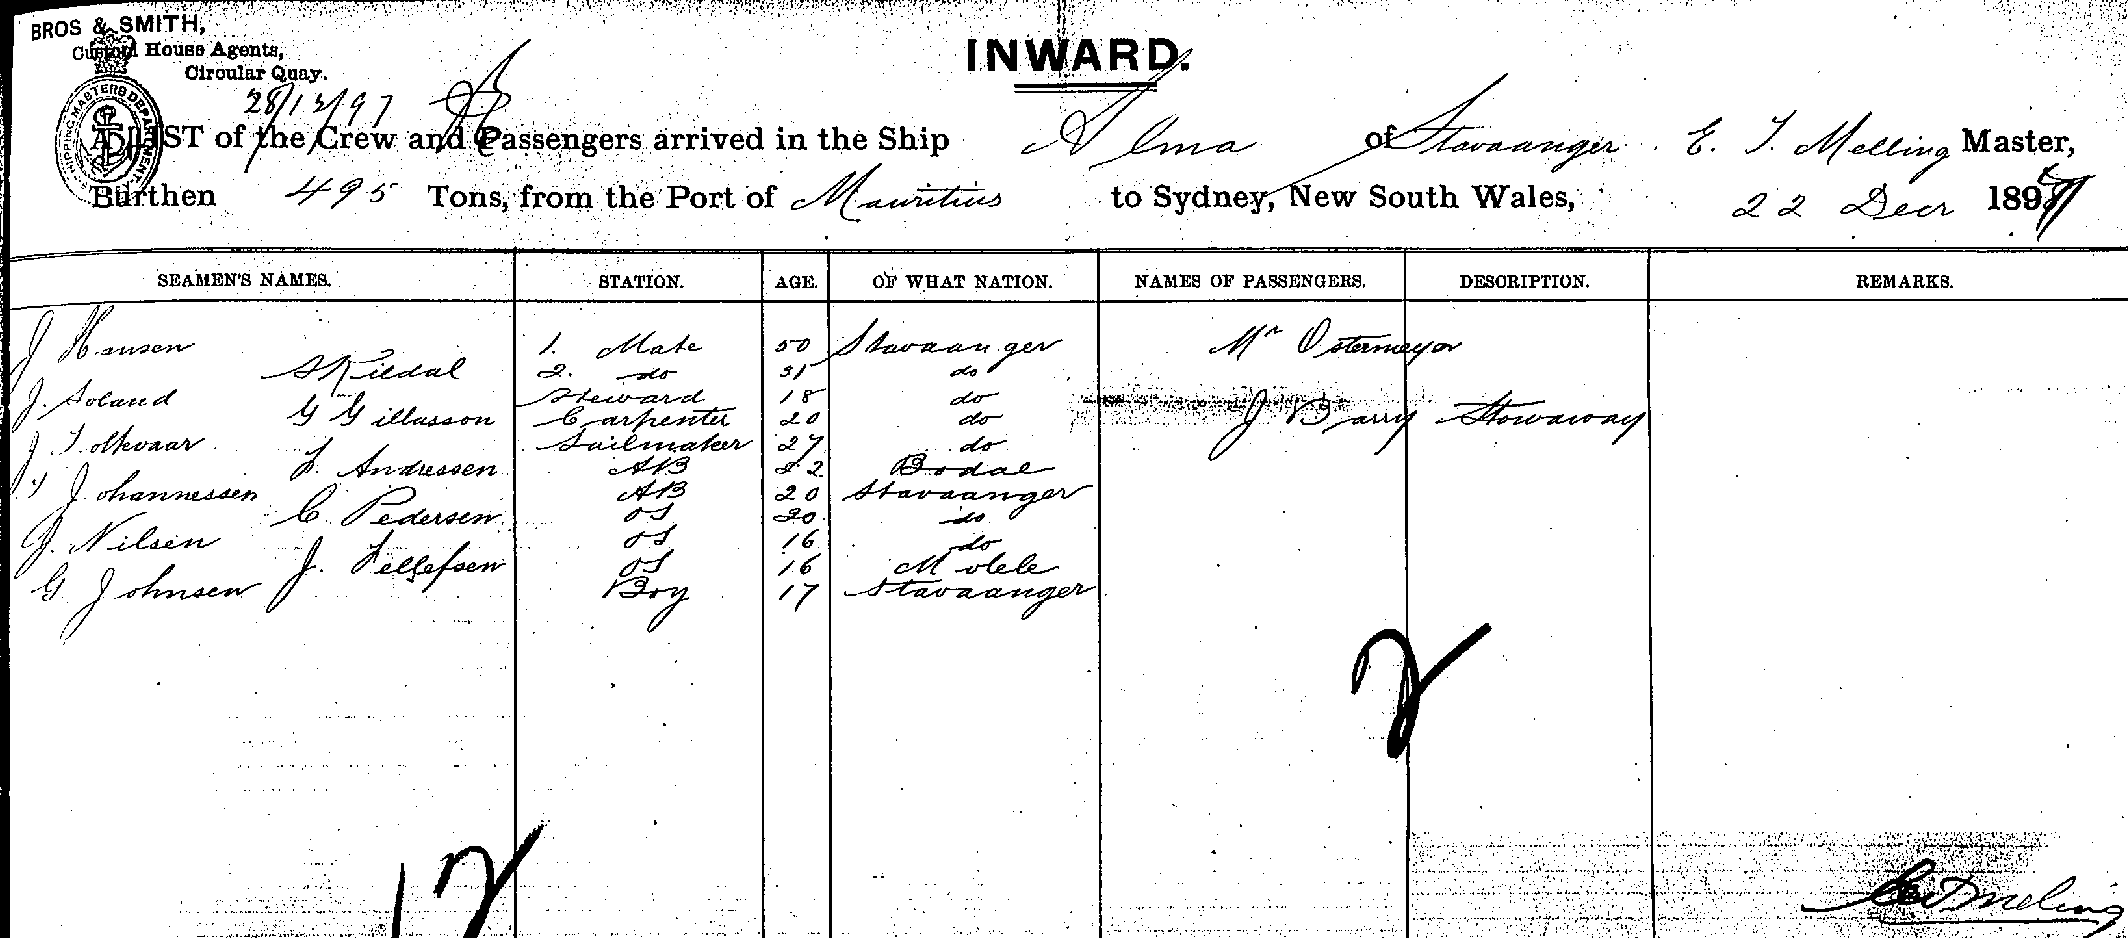 BROS & SMITH,
Custom House Agents,
Circular Quay.
INWARD.
28/12/97
A LIST of the Crew and Passengers arrived in the Ship Alma of Stavaanger E. T. Melling Master,
Burthen 495 Tons, from the Port of Mauritius to Sydney, New South Wales, 22 Decr 1897
SEAMEN'S NAMES. STATION. AGE. OF WHAT NATION. NAMES OF PASSENGERS. DESCRIPTION. REMARKS.
J Hansen 1. Mate 50 Stavaanger Mr Ostermeyer
S Kildal 2. do 31 do
J. Soland Steward 18 do
G Gillasson Carpenter 20 do J Barry Stowaway
J Tolkvaar Sailmaker 27 do
T. Andressen AB 22 Bodal
J Johannessen AB 20 Stavaanger
C. Pedersen OS 20 do
J. Nilsen OS 16 do
J. Tellefsen OS 16 Molele
G Johnsen Boy 17 Stavaanger
2
12